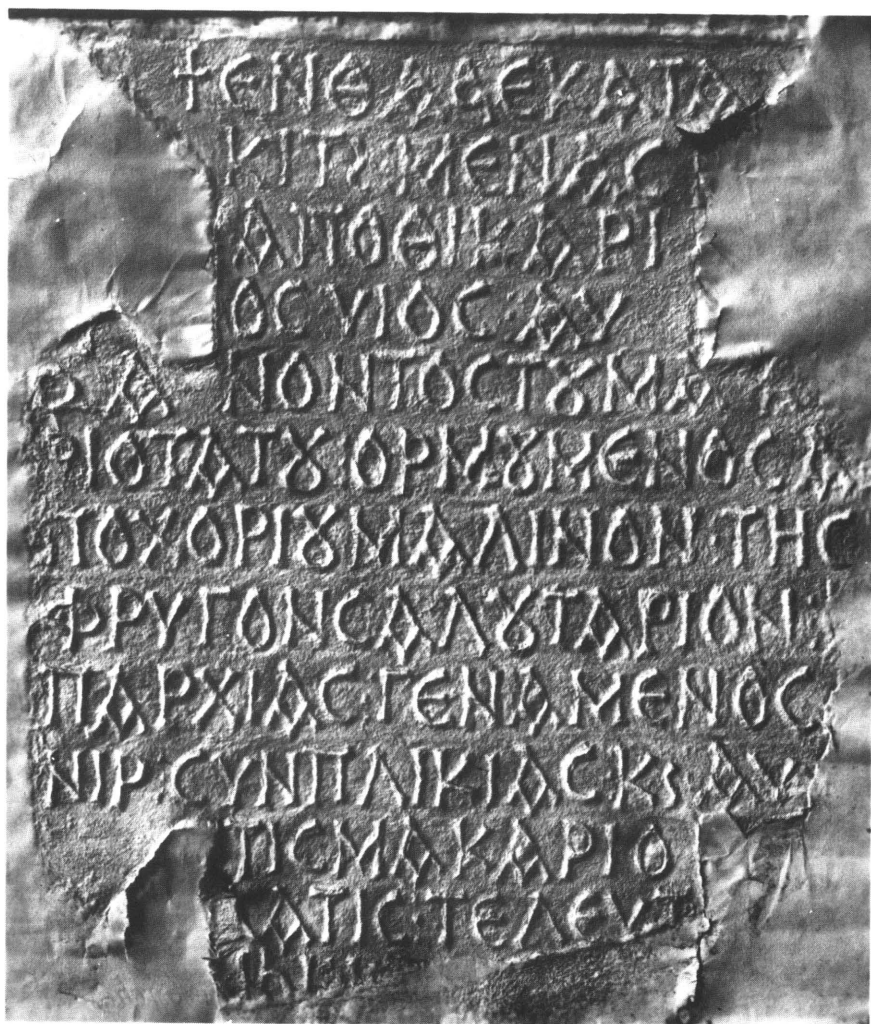 ✝ ΕΝΘΑΔΕΚΑΤΑ
ΚΙΤΕ ΜΕΝΑΣ
ΑΠΟΘΙΚΑΡΙ
ΟΣ ΥΙΟΣ ΑΥ
ΡΑ ΝΟΝΤΟΣ ΤȢ ΜΑΚΑ
ΡΙΟΤΑΤȢ ΟΡΜȢΜΕΝΟΣ Α
ΤΟΧΟΡΙȢ ΜΑΛΙΝΟΝ ΤΗΣ
ΦΡΥΓΟΝ ΣΑΛȢΤΑΡΙΟΝ
ΠΑΡΧΙΑΣ ΓΕΝΑΜΕΝΟΣ
ΝΙΡ ΣΥΝΠΛΙΚΙΑΣ Κς ΑΥ
ΠΣ ΜΑΚΑΡΙΟ
ΑΤΙΣ ΤΕΛΕΥΤ